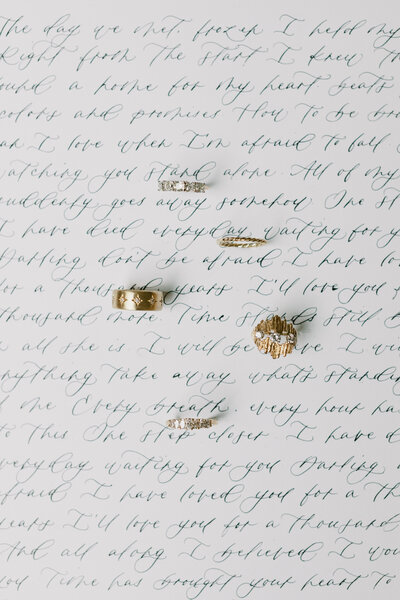 The day we met, frozen I held my
Right from the start I knew th
ound a home for my heart beats
colors and promises How to be bra
an I love when I'm afraid to fall.
watching you stand alone. All of my
suddenly goes away somehow. One st
I have died everyday waiting for y
Darling don't be afraid I have lo
for a thousand years. I'll love you f
thousand more. Time stands still B
n all she is. I will be brave I wi
nything take away what's standin
t me Every breath, every hour ha
to this. One step closer. I have d
everyday waiting for you Darling d
afraid I have loved you for a th
years I'll love you for a thousand
And all along I believed I wou
you Time has brought your heart to